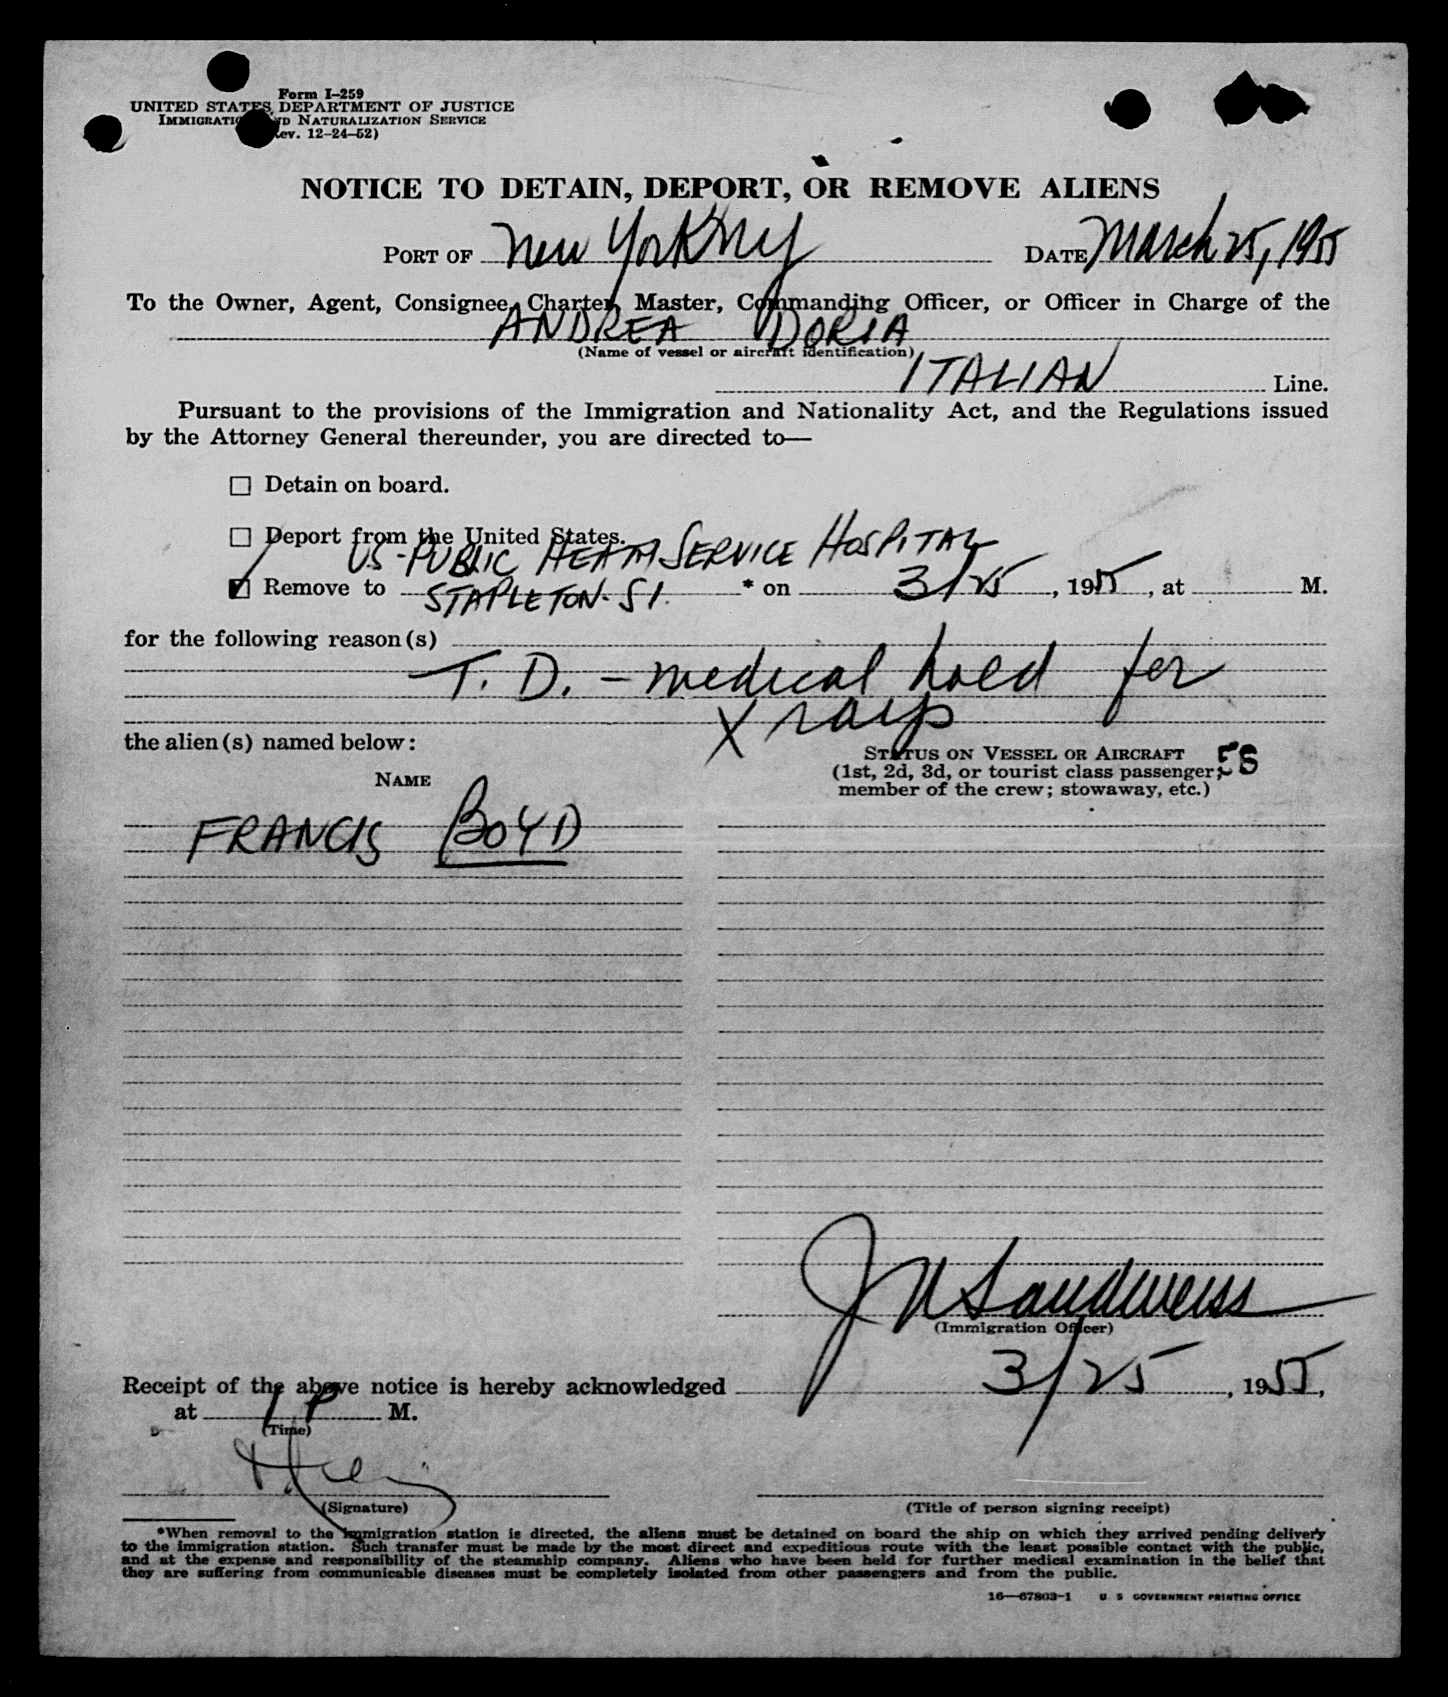 Form I-259
UNITED STATES DEPARTMENT OF JUSTICE
IMMIGRATION AND NATURALIZATION SERVICE
(Rev. 12-24-52)
NOTICE TO DETAIN, DEPORT, OR REMOVE ALIENS
PORT OF New York NY DATE March 25, 1955
To the Owner, Agent, Consignee, Charter, Master, Commanding Officer, or Officer in Charge of the
ANDREA DORIA
(Name of vessel or aircraft identification)
ITALIAN Line.
Pursuant to the provisions of the Immigration and Nationality Act, and the Regulations issued
by the Attorney General thereunder, you are directed to—
☐ Detain on board.
☐ Deport from the United States.
US-PUBLIC HEATH SERVICE HOSPITAL
Remove to STAPLETON-SI. * on 3/25, 1955, at M.
for the following reason(s)
T. D. - medical hold for
X rays
the alien(s) named below:
STATUS ON VESSEL OR AIRCRAFT
(1st, 2d, 3d, or tourist class passenger;
member of the crew; stowaway, etc.)
58
NAME
FRANCIS BOYD
J N Sandweiss
(Immigration Officer)
Receipt of the above notice is hereby acknowledged 3/25, 1955,
at 1 P M.
(Time)
(Signature) (Title of person signing receipt)
*When removal to the immigration station is directed, the aliens must be detained on board the ship on which they arrived pending delivery
to the immigration station. Such transfer must be made by the most direct and expeditious route with the least possible contact with the public,
and at the expense and responsibility of the steamship company. Aliens who have been held for further medical examination in the belief that
they are suffering from communicable diseases must be completely isolated from other passengers and from the public.
16—67803-1 U S GOVERNMENT PRINTING OFFICE